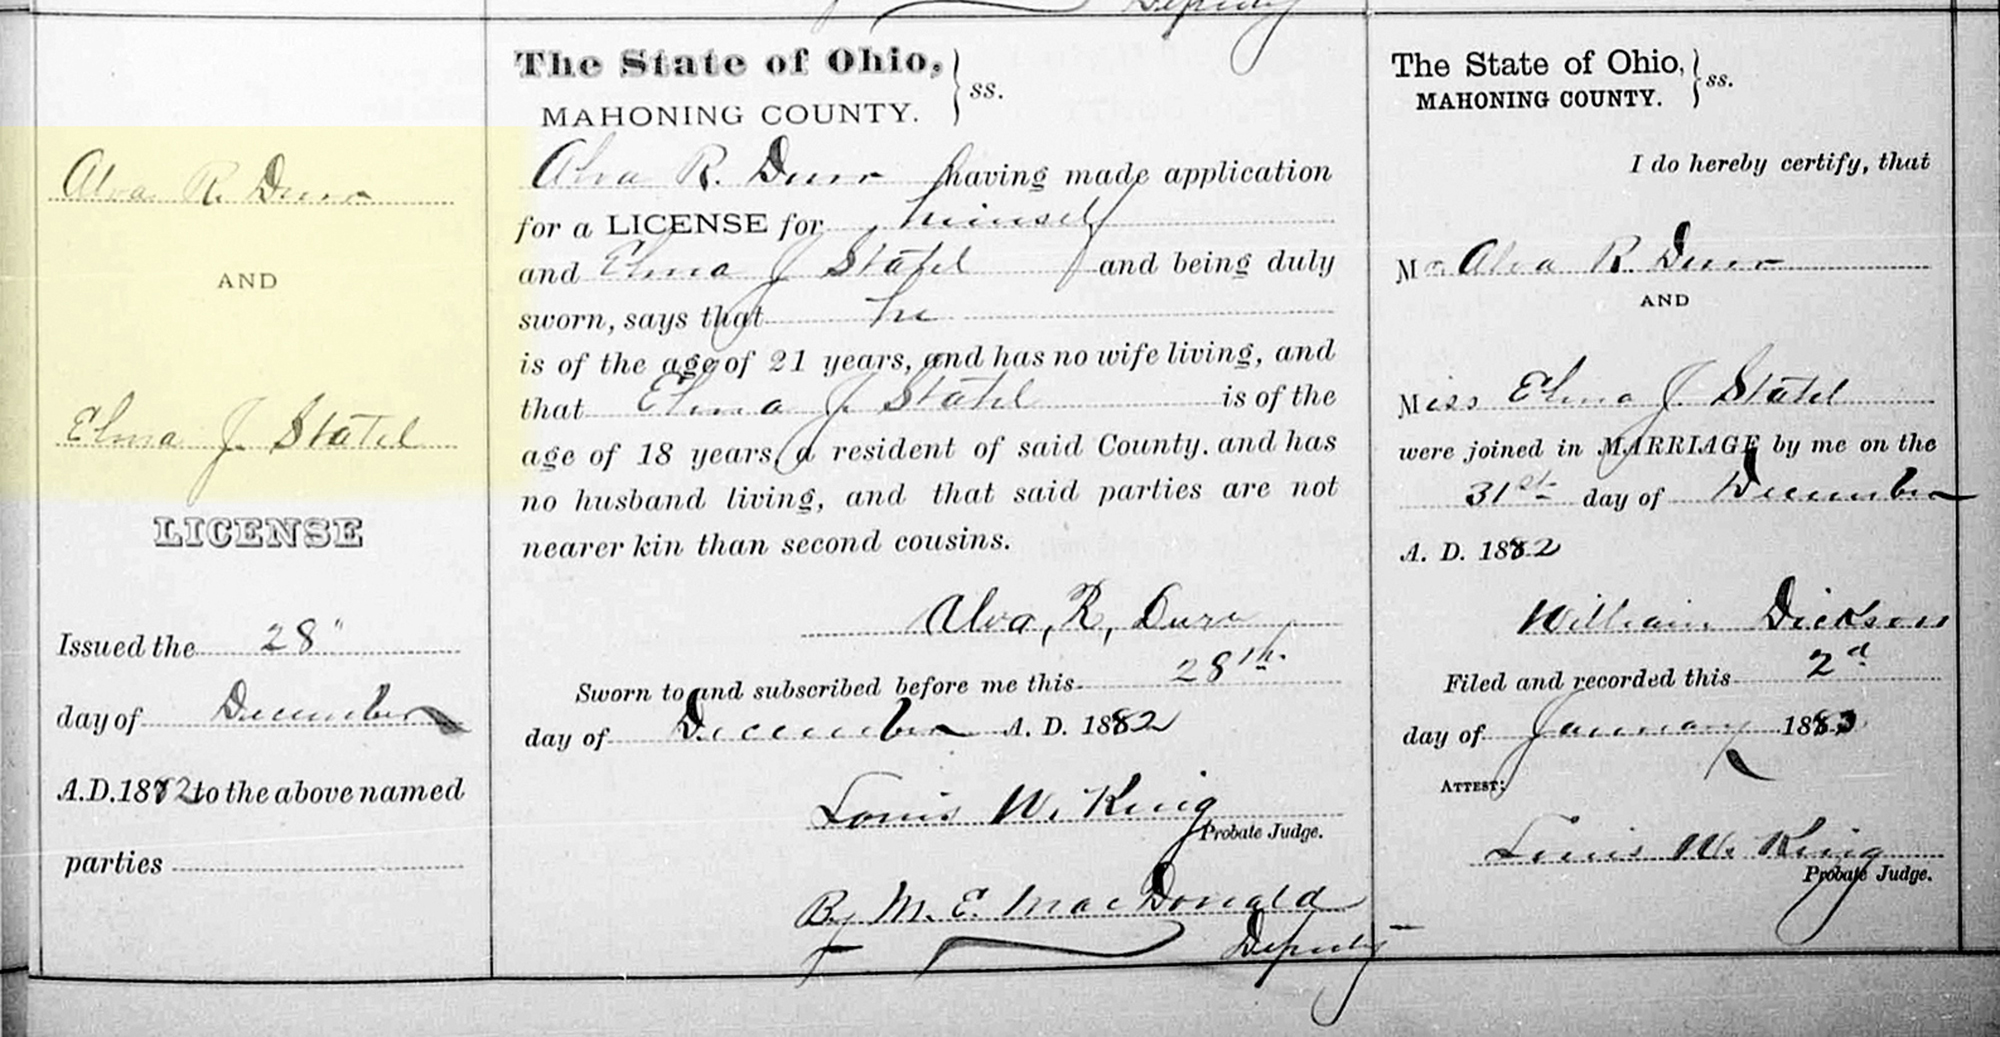 Deputy
Alva R. Durr
AND
Elma J. Statel
LICENSE
Issued the 28"
day of December
A.D. 1882 to the above named
parties
The State of Ohio, } ss.
MAHONING COUNTY.
Alva R. Durr having made application
for a LICENSE for himself
and Elma J Statel and being duly
sworn, says that he
is of the age of 21 years, and has no wife living, and
that Elma J. Statel is of the
age of 18 years, a resident of said County. and has
no husband living, and that said parties are not
nearer kin than second cousins.
Alva, R, Durr
Sworn to and subscribed before me this 28th.
day of December A. D. 1882
Louis W. King
Probate Judge.
By M. E. MacDonald
Deputy
The State of Ohio, } ss.
MAHONING COUNTY.
I do hereby certify, that
Mr. Alva R. Durr
AND
Miss Elma J. Statel
were joined in MARRIAGE by me on the
31st day of December
A. D. 1882
William Dickson
Filed and recorded this 2d
day of January 1883
ATTEST:
Louis W. King
Probate Judge.